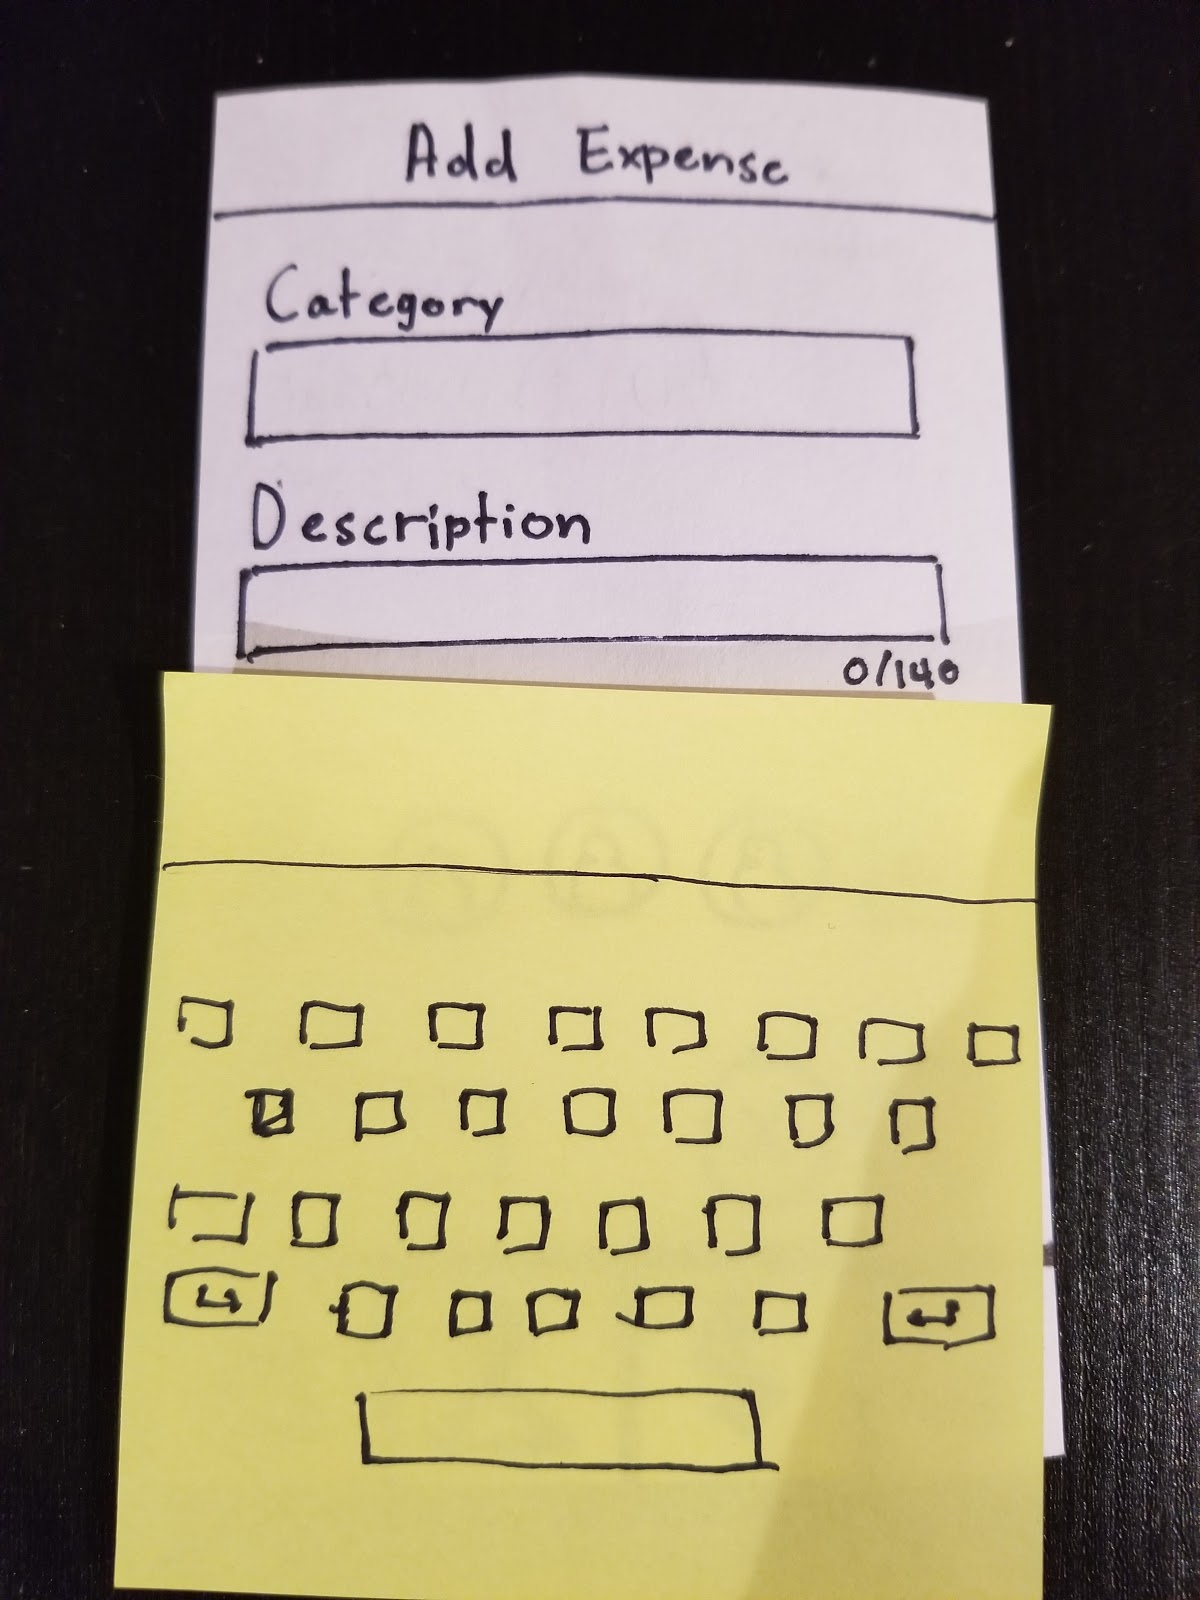 Add Expense
Category
Description
0/140